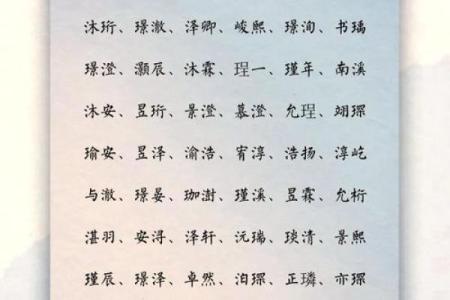 沐珩、璟澈、泽卿、峻熙、璟洵、书瑀
璟澄、灏辰、沐霖、珵一、瑾年、南溪
沐安、昱珩、景澄、慕澄、允珵、翊琛
瑜安、昱泽、渝浩、宥淳、浩扬、淳屹
与澈、璟晏、珈澍、瑾溪、昱霖、允桁
湛羽、安浔、泽轩、沅瑞、琰清、景熙
瑾辰、璟泽、卓然、洎琛、正璘、亦琛